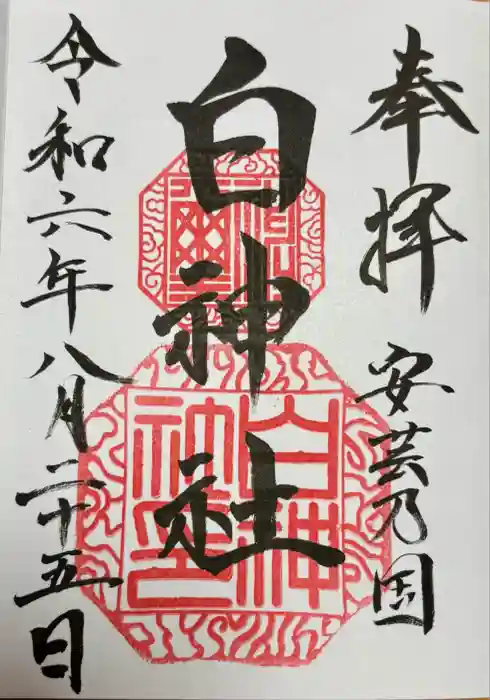 奉拝 安芸乃国
白神社
令和六年八月二十五日